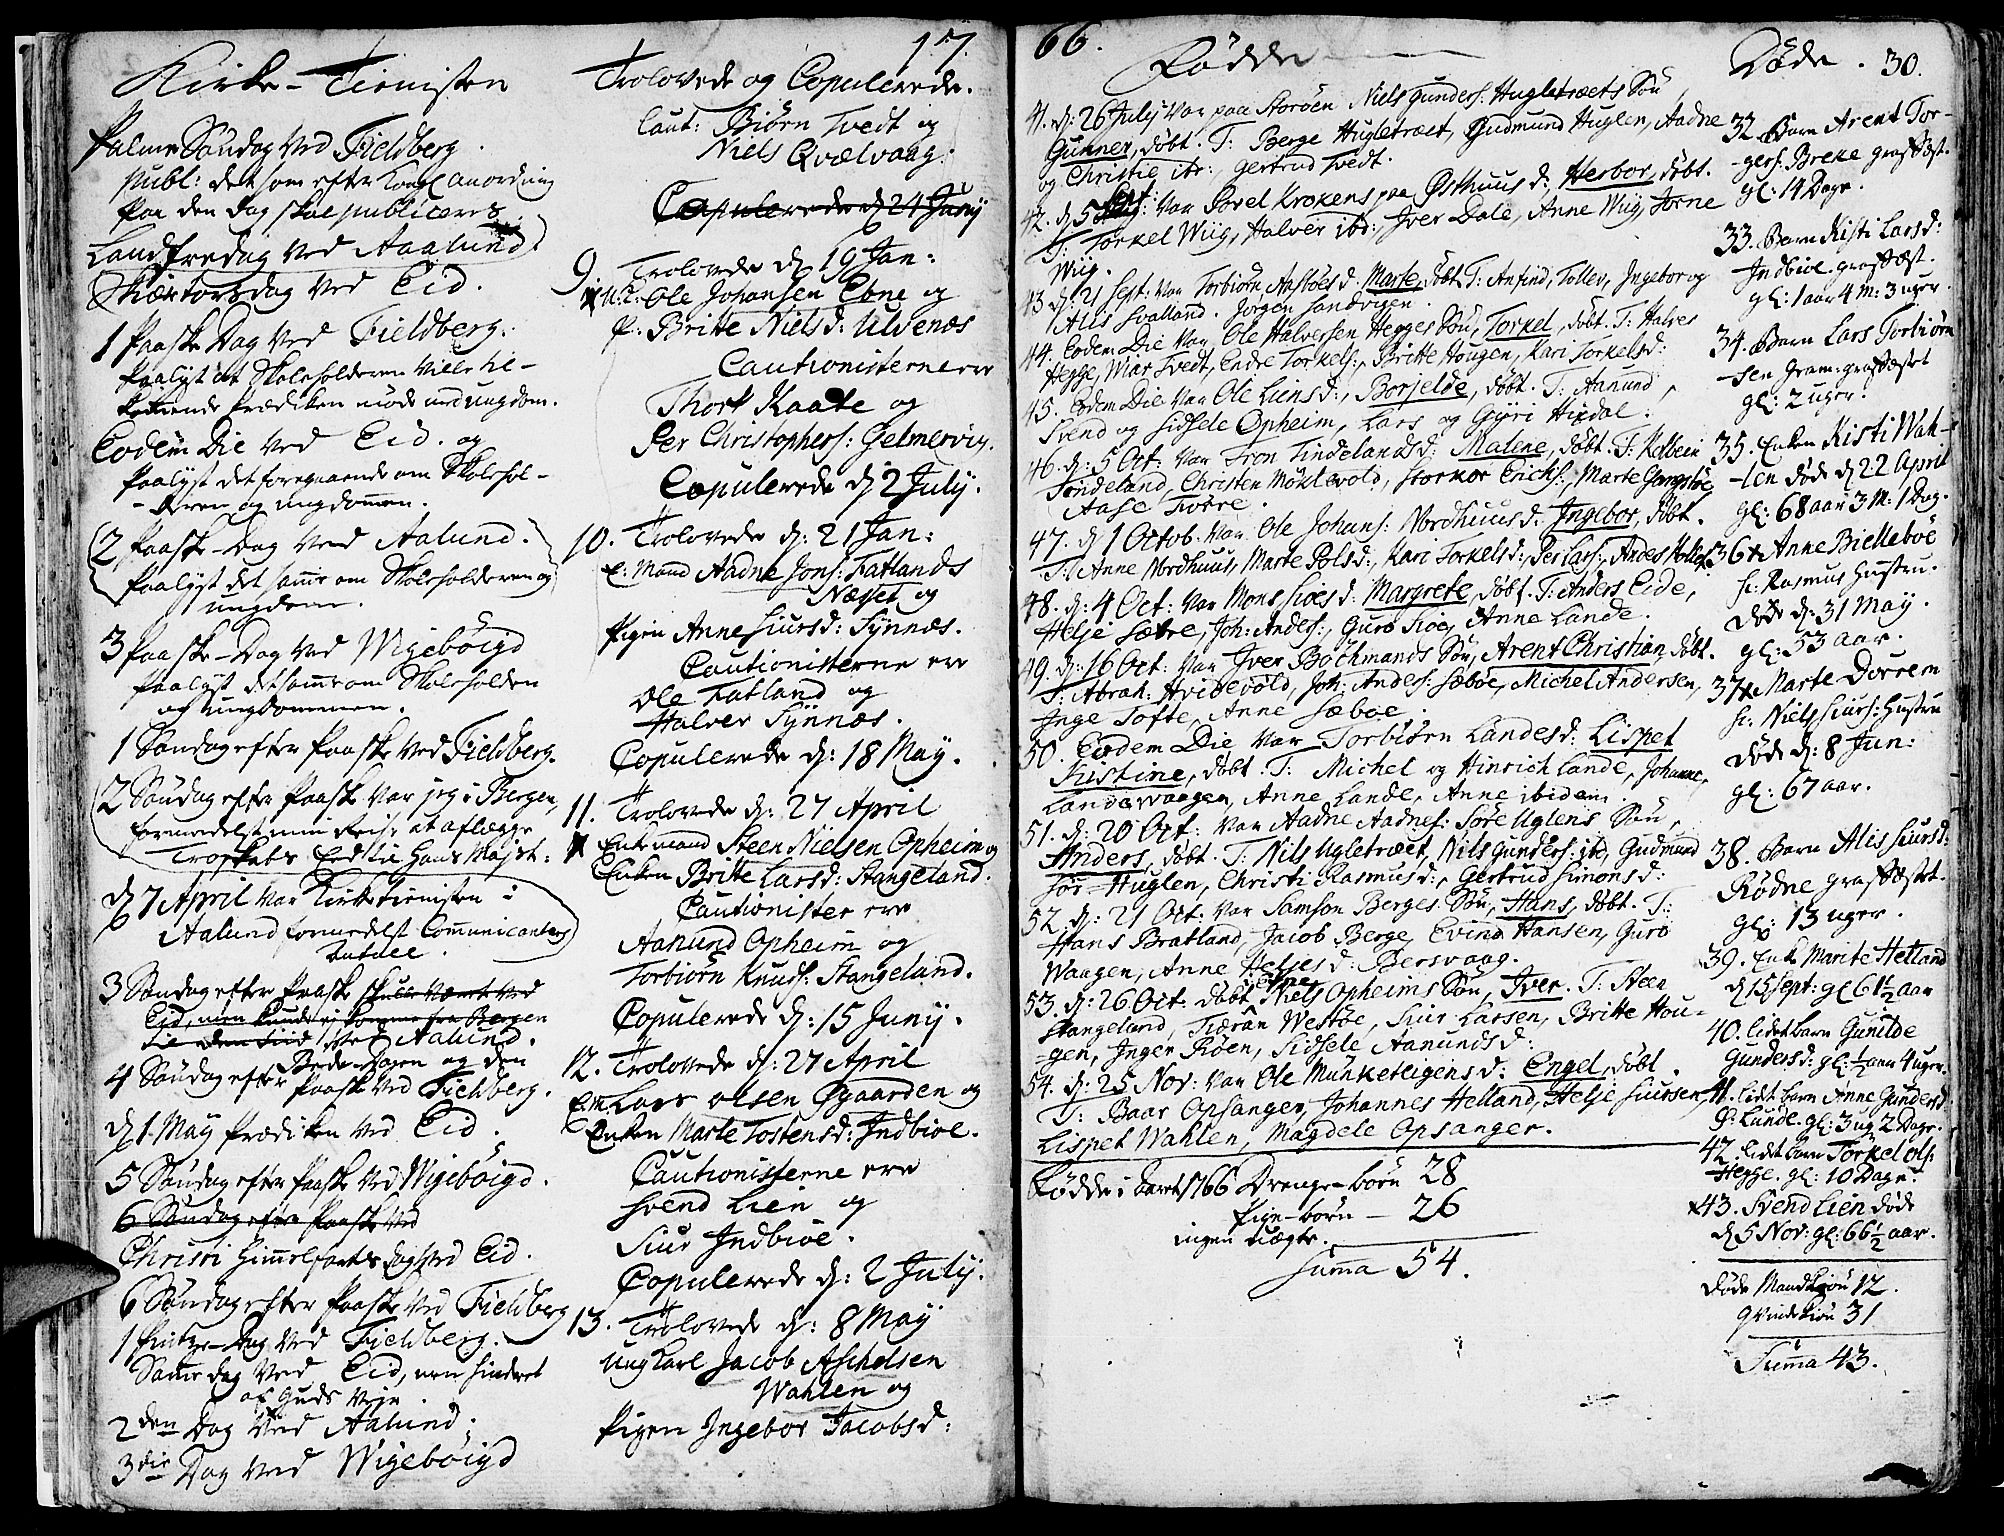 17
Kirke-Tienisten
Palme Søndag Ved Fieldberg.
publ: det som efter Kongl anordning
paa den dag skal publiceres
Landfredag Ved Aaalund
Skiærtorsdag Ved Eid.
1 Paaske Dag Ved Fieldberg.
Paalyst at Skoleholderen Ville he-
prædiken møde med ungdom.
Eodem Die Ved Eid. og
Paalyst det foregaaende om Skolehol-
-deren og ungdommen.
2 Paaske-Dag Ved Aalund.
Paalyst det samme om Skoleholderen og
ungdom.
3 Paaske-Dag Ved Wigebøigd
Paalyst det samme om Skoleholden
og ungdommen.
1 Søndag efter Paaske Ved Fieldberg.
2 Søndag efter Paaske Var jeg i Bergen,
formedelst min Reise at aflegge
Troskabs Eed til Hans Mayst:
d 7 April Var Kirketienisten i
Aalund formedelst Communicanters
Antall.
3 Søndag efter Paaske skulle Været Ved
Eid, men kunde ej komme fra Bergen
til den tiid Ved Aalund.
Bededagen og den
4 Søndag efter Paaske Ved Fieldberg.
d 1 May Prædiken Ved Eid.
5 Søndag efter Paaske Ved Wigebøigd.
6 Søndag efter Paaske Ved
Christi Himmelfarts dag Ved Eid.
6 Søndag efter Paaske Ved Fieldberg
1 Pintze-Dag Ved Fieldberg.
Samme dag Ved Eid, men hindret
af Guds Vejr
2den Dag Ved Aalund;
3die Dag Ved Wigebøigd
Trolovede og Copulerede.
Caut: Biørn Tvedt og
Niels Qvælvaag.
Copulerede d 24 Junij
9. Trolovede d 19 Jan:
Ole Johansen Ebne og
P: Britte Nielsd: Ulvenæs
Cautionisterne ere
Thore Kaate og
Per Christophers: Gelmervig.
Copulerede d 2 July.
10. Trolovede d: 21 Jan:
E: Mand Aadne Jons: Fatlands
Næsset og
Pigen Anne Siursd: Synnæs.
Cautionisterne ere
Ole Fatland og
Halver Synnæs.
Copulerede d: 18 May.
11. Trolovede d: 27 April
Enkemand Steen Nielsen Opheim og
Enken Britte Larsd: Stangeland.
Cautionister ere
Aanund Opheim og
Torbiørn Knuds: Stangeland.
Copulerede d: 15 Junij.
12. Trolovede d: 27 April
E.M. Lars Olsen Øgaarden og
Enken Marte Tostensd: Indbioe.
Cautionisterne ere
Svend Lien og
Siur Indbioe.
Copulerede d: 2 July.
13. Trolovede d: 8 May
ung Karl Jacob Aschelsen
Wahlen og
Pigen Ingebor Jacobsd:
66.
Fødde
41. d: 26 July Var paa Storøen Niels Gunders: Hugletræets Søn
Gunner, døbt. T: Berge Hugletræet, Gudmund Huglen, Aadne
og Christie ibr:, Gertrud Tvedt.
42. d 5 Sept: Var Povel Krokens paa Østhuus d: Herbor, døbt.
T: Torkel Wiig, Halver ibd:, Iver Dale, Anne Wiig, Jorne
Wiig.
43 d: 21 Sept: Var Torbiørn Aasbøes d: Marte, døbt. T: Anfind, Tollev, Ingebor og
Alis Svalland. Jørgen Sandvigen.
44. Eodem Die Var Ole Halversen Hegges Søn, Torkel, døbt. T: Halves
Hegge, Mar Tvedt, Endre Torkels:, Britte Hougen, Kari Torkelsd:
45. Eodem Die Var Ole Liens d:, Borjelde, døbt. T: Aanund,
Svend og Sidsele Opheim, Lars og Gyri Hixdal.
46. d: 5 Oct: Var Tron Tindelands d: Malene, døbt. T: Kolbein
Tindeland, Christen Møklevold, Storkor Erichs:, Marte Gangstøe,
Aase Torre.
47. d 1 Octob. Var Ole Johans: Nordhuus d: Ingebor, døbt.
T: Anne Nordhuus, Marte Polsd:, Kari Torkelsd:, Per Lars:, Andes
48. d: 4 Oct: Var Mons Sioes d: Margrete, døbt. T: Anders Eide,
Helje Sætre, Joh: Anders:, Guro Sioe, Anne Lande.
49. d: 16 Oct: Var Iver Bochmands Søn, Arent Christian, døbt.
T: Abrah: Hvidevold, Joh: Anders: Sæboe, Michel Andersen,
Inge Tofte, Anne Sæboe.
50. Eodem Die Var Torbiørn Landes d: Lispet
Kirstine, døbt. T: Michel og Hinrich Lande, Johanne,
Landevaagen, Anne Lande, Anne ibidem.
51. d: 20 Oct: Var Aadne Aadnes: Søre Uglens Søn,
Anders, døbt. T: Nils Ugletræet, Nils Gunders: ib, Gudmund
Sør-Huglen, Christi Rasmusd:, Gertrud Simonsd:
52. d: 21 Oct: Var Samson Berges Søn, Hans, døbt. T:
Hans Bratland, Jacob Berge, Evind Hansen, Guro
Waagen, Anne Heljes d: Bersvaag.
53. d: 26 Oct: døbt Niels Opheims Søn, Iver. T: Steen
Stangeland, Tiærān Westøe, Siur Larsen, Britte Hou-
-gen, Inger Røen, Sidsele Aanundsd:
54. d: 25 Nov: Var Ole Munketeigens d: Engel, døbt.
T: Baar Opsanger, Johannes Helland, Helje Siursen,
Lispet Wahlen, Magdele Opsanger.
Fødde i Aaret 1766 Drenge-børn 28
Pige-børn - 26
ingen uægte.
Summa 54.
Døde. 30.
32 Barn Arent Tor-
-gers: Breke grafsæst.
gl: 14 Dage.
33. Barn Kisti Larsd:
Indbioe. grafsæst.
gl: 1 aar 4 m: 3 uger.
34. Barn Lars Torbiørn
-sen Gram: grafsæstet
gl: 2 uger.
35. Enken Kisti Wah-
-len døde d 22 April
gl: 68 aar 3 M: 1 Dag.
36 Anne Biellebøe
h: Rasmus Hustru.
døde d: 31 May.
gl: 53 aar.
37 Marte Dorrem
h: Niels Siurs: Hustru
døde d: 8 Jun:
gl: 67 aar.
38. Barn Alis Siursd:
Rødne grafsæstet.
gl: 13 uger.
39. Enk. Marite Hetland
d 15 Sept: gl 61½ aar
40. lidet barn Gunilde
Gundersd: gl: ½ aar 4 uger.
41. lidet barn Anne Gundersd
Lunde. gl: 3 ug 2 Dage.
42. lidet barn Torkel Ols:
Hegge. gl: 10 Dage.
43. Svend Lien døde
d 5 Nov: gl: 66½ aar.
Døde Mandkiøn 12.
Qvindekiøn 31
Summa 43.